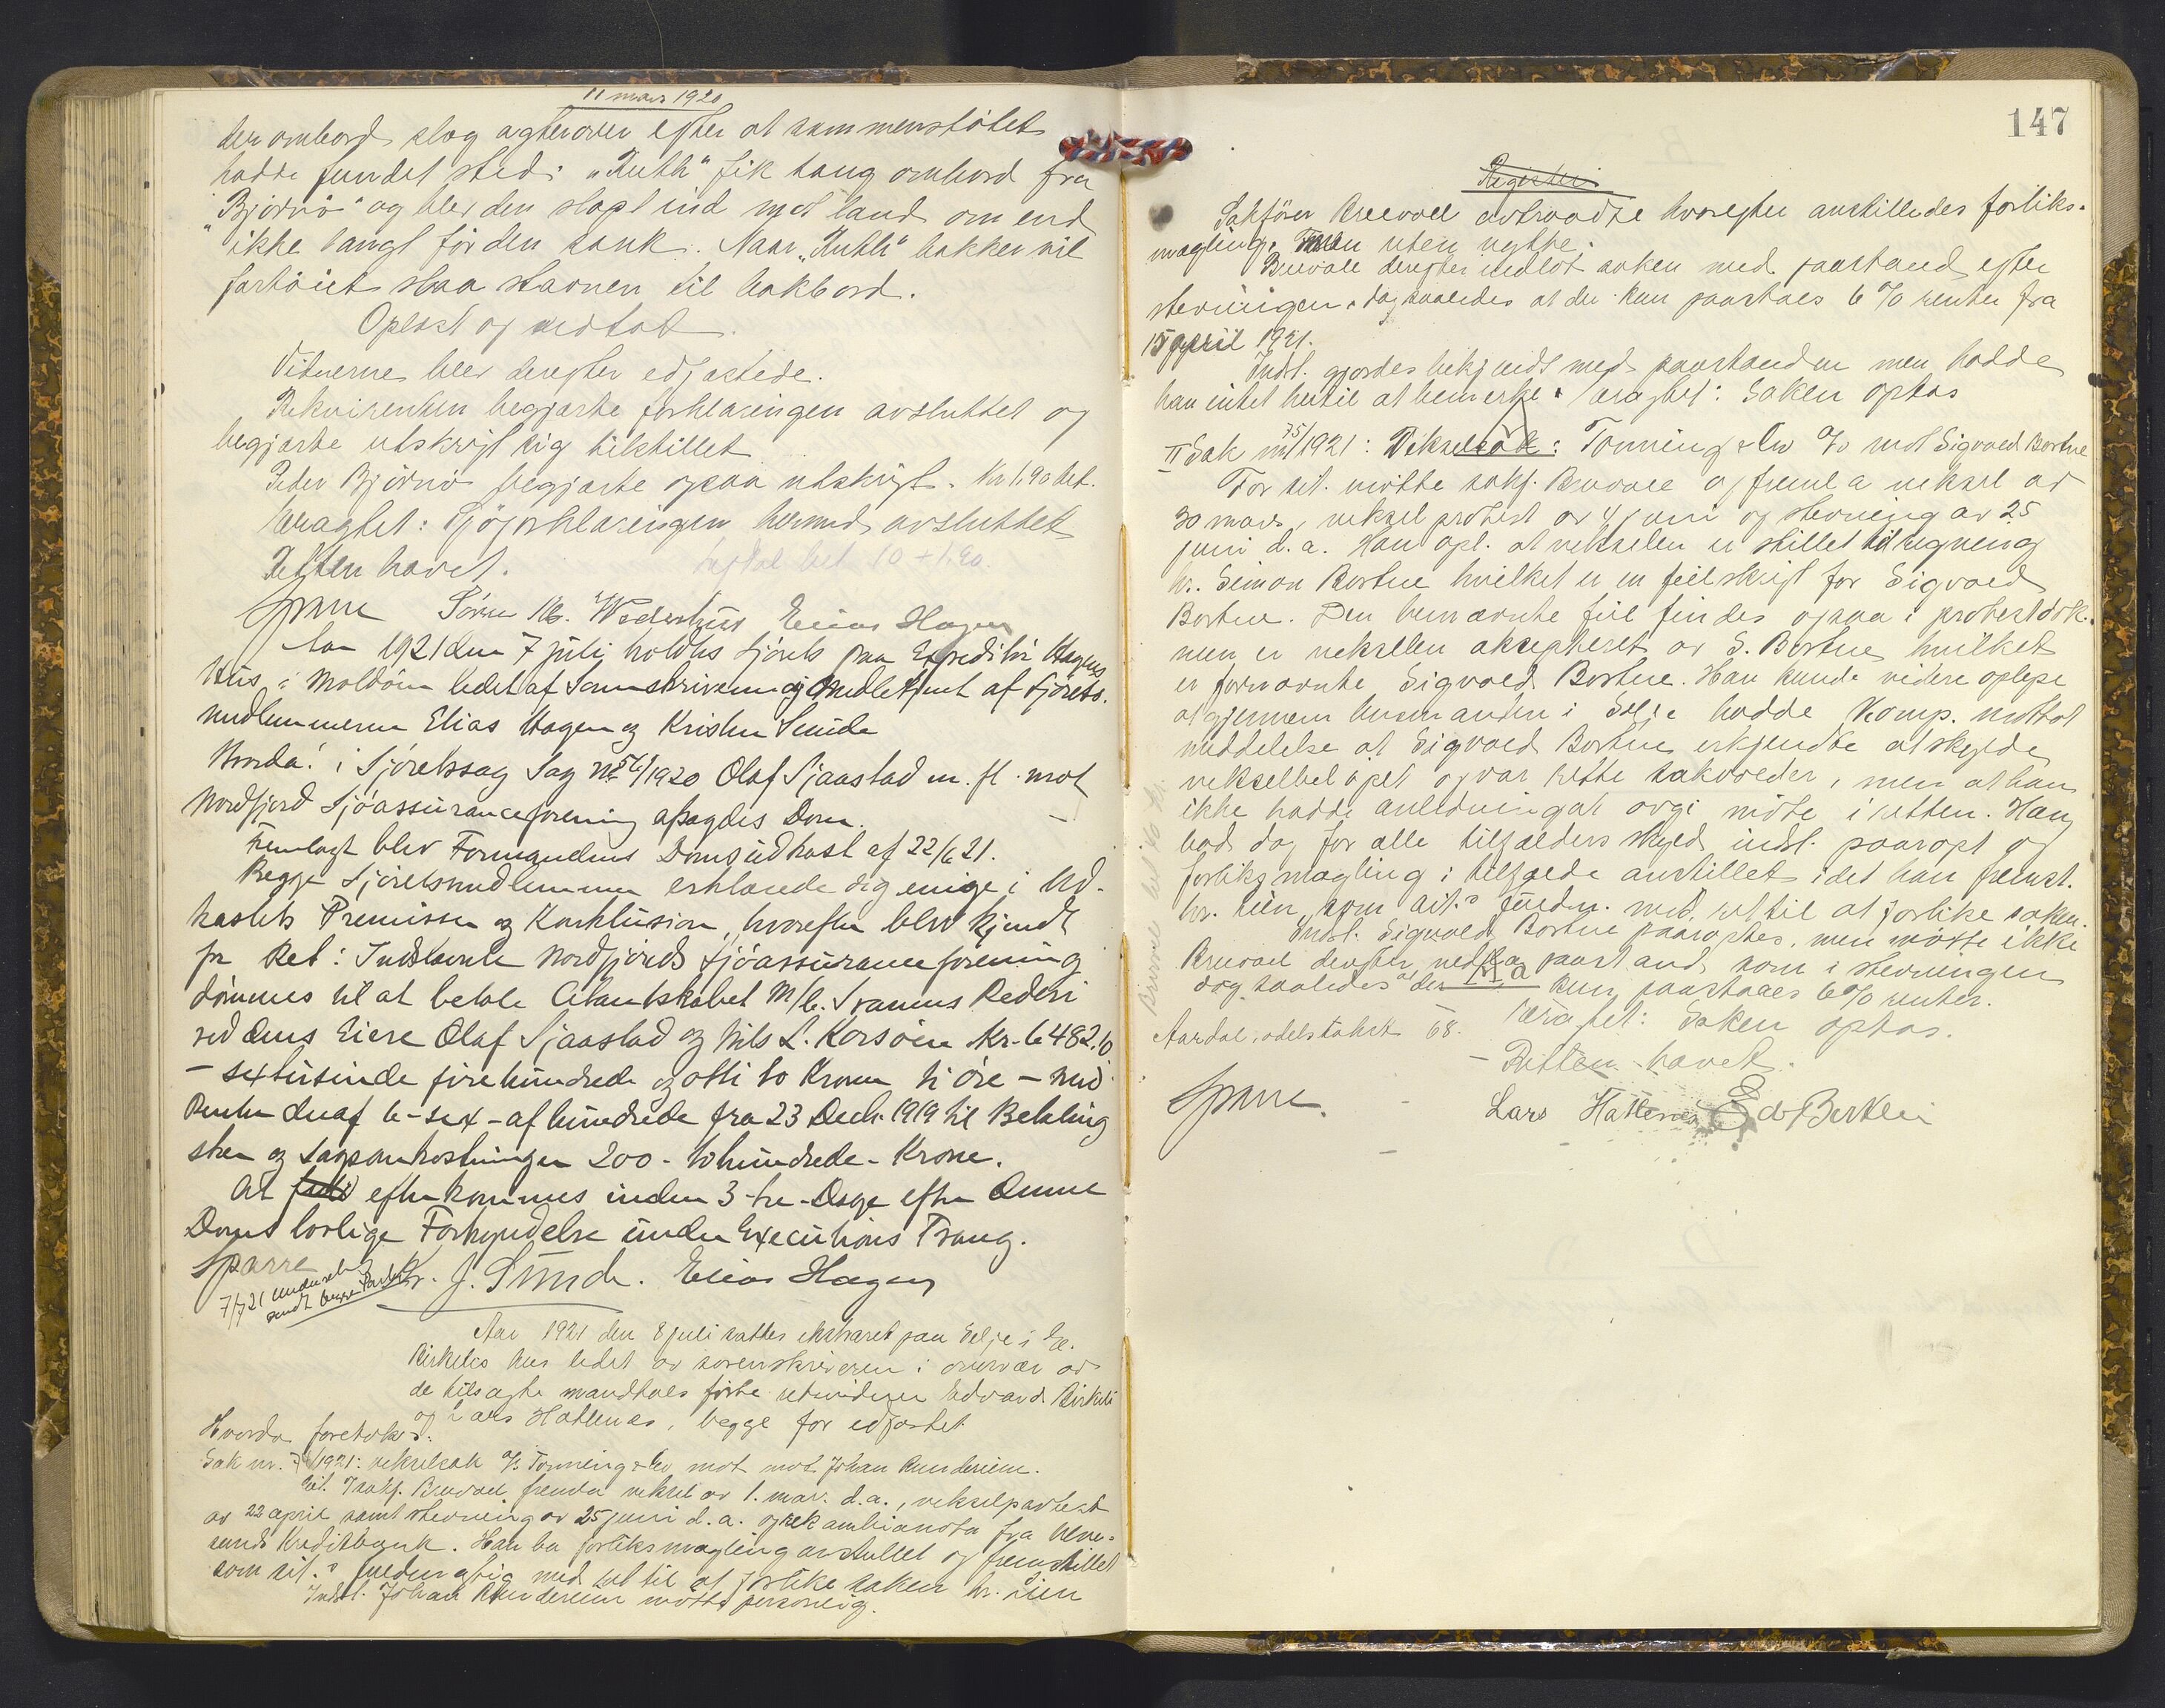 11 mars 1920
der ombord slog agterover efter at sammenstötet
hadde fundet sted. "Ruth" fik taug ombord fra
"Björnö" og blev den slæpt ind mot land om end
ikke langt för den sank. Naar "Ruth" bakker vil
fartöiet slaa stavnen til bakbord.
Oplæst og vedtat.
Vitnerne blev derefter edfæstede.
Rekvirenten begjærte forklaringen avsluttet og
begjærte utskrift sig tilstillet
Peder Björnö begjærte ogsaa utskrift. Kr 1,90 bet.
Eragtet: Sjöforklaringen hermed avsluttet
Retten hævet.
bet 10 + 1.90.
Sparre Elias Hagen
Aar 1921 den 7 juli holdtes Sjöret paa Expeditör Hagens
Hus i Moldöen ledet af Sorenskriveren og omedlemmet af Sjörets-
medlemmerne Elias Hagen og Kristen Sunde
Hvorda: i Sjöretssag Sag No 56/1920 Olaf Sjaastad m. fl. mot
Nordfjord Sjöassuranceforening afsagdes Dom.
Fremlagt blev Formandens Domsudkast af 22/6 21.
Begge Sjöretsmedlemmer erklærede sig enige i Ud-
kastets Premisser og Konklusion, hvorefter blev kjendt
for Ret: Indstevnte Nordfjords Sjöassuranceforening
dömmes til at betale Citantskabet M/k. Svanens Rederi
ved dens Eiere Olaf Sjaastad og Nils L. Korsöen Kr. 6482.10
- sextusinde firehundrede og otti to Kroner ti öre - med
Renter deraf 6 - sex - af hundrede fra 23 Decb. 1919 til Betaling
sker og Sagsomkostninger 200 - tohundrede - Krone.
At efterkommes inden 3 - tre - Dage efter denne
Doms lovlige Forkyndelse under Executions Tvang.
Sparre Kr. J. Sunde. Elias Hagen
7/7 21 sendt begge Parter
Aar 1921 den 8 juli sattes ekstraret paa Selje i
Birkelis hus ledet av sorenskriveren i overvær av
de tilsagte mandtals förte retsvidner Edvard Birkeli
og Lars Hatlenes, begge för edfæstet
Hvorda foretokes:
Sak nr. 1921: vekselsak A/S Tonning & Co mot mot Johan Runderein.
Cit. v/ sakf. Bruvoll fremla veksel av 1. mar. d.a., vekselprotest
av 22 april samt stevning av 25 juni d.a. og rekambianota fra Aale-
sunds Kreditbank. Han ba forliksmægling anstillet og fremstillet
som cit.s fuldmægtig med ret til at forlike saken hr. Lien
Indst. Johan Runderein mötte personlig.
147
Register
Sakförer Bruvoll avtraadte hvorefter anstilledes forliks-
mægling, men uten nytte.
Bruvoll derefter indlot saken med paastand efter
stevningen, dog saaledes at der kun paastaaes 6 % renter fra
15 april 1921.
Indst. gjordes bekjendt med paastanden men hadde
han intet hertil at bemerke. Eragtet: Saken optas
II Sak nr 75/1921: Vekselsak: Tonning & Co A/S mot Sigvald Bortne
For cit. mötte sakf. Bruvoll og fremla veksel av
30 mars, vekselprotest av 4 juni og stevning av 25
juni d.a. Han opl. at vekselen er stillet til regning
hr. Simon Bortne hvilket er en feilskrift for Sigvald
Bortne. Den benævnte feil findes ogsaa i protestdok.
men er vekselen aksepteret av S. Bortne hvilket
er fornævnte Sigvald Bortne. Han kunde videre oplyse
at gjennem lensmanden i Selje hadde Komp. mottat
meddelelse at Sigvald Bortne erkjendte at skylde
vekselbelöpet og var rette vedkommende, men at han
ikke hadde anledning at avgi möte i retten. Han
bad dog for alle tilfælders skyld indst. paaropt og
forliksmægling i tilfælde anstillet idet han fremst.
hr. Lien som cit.s fuldm. med ret til at forlike saken.
Indst. Sigvald Bortne paaroptes, men mötte ikke
Bruvoll derefter nedla paastand som i stevningen
dog saaledes at der kun paastaaes 6 % renter.
Eragtet: Saken optas.
Aardal, odelstakst 68.
- Retten hævet.
Sparre.
Lars Hatlenes Ed Birkeli